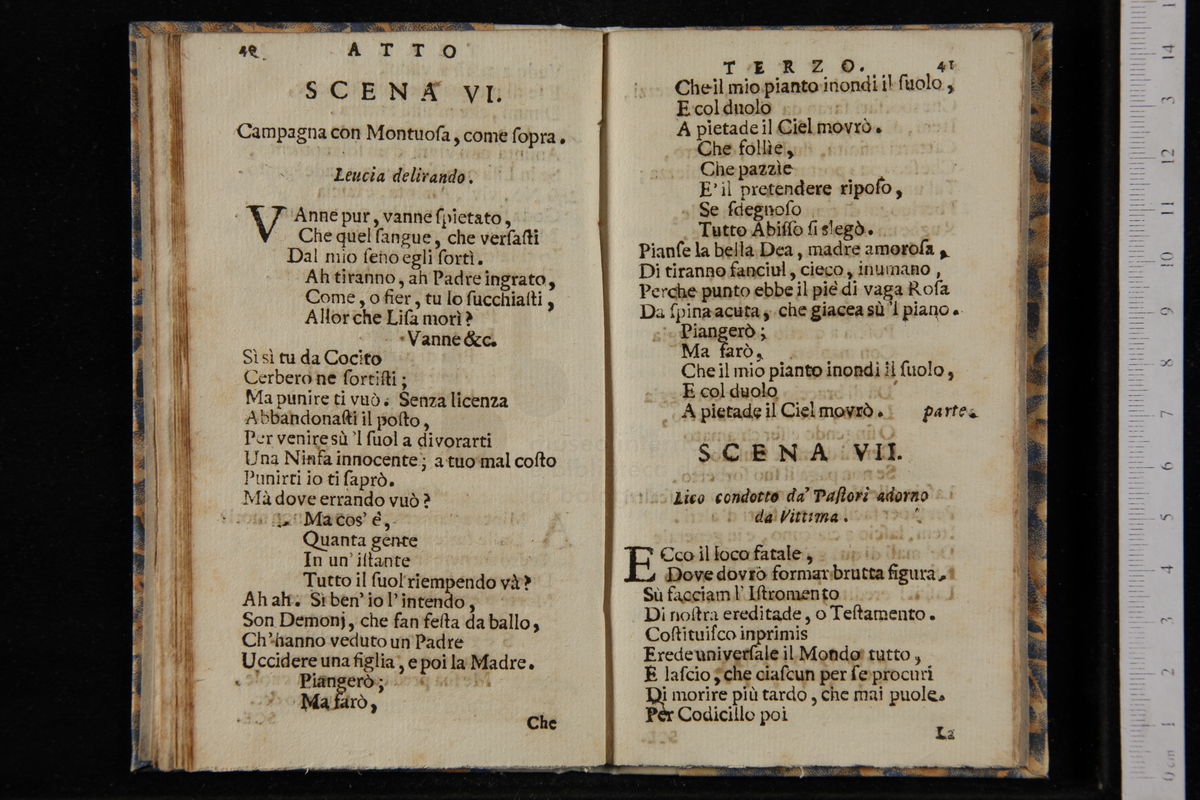 40 ATTO
SCENA VI.
Campagna con Montuosa, come sopra.
Leucia delirando.
VAnne pur, vanne spietato,
Che quel sangue, che versasti
Dal mio seno egli sortì.
Ah tiranno, ah Padre ingrato,
Come, o fier, tu lo succhiasti,
Allor che Lisa morì?
Vanne &c.
Sì sì tu da Cocito
Cerbero ne sortisti;
Ma punire ti vuò. Senza licenza
Abbandonasti il posto,
Per venire sù 'l suol a divorarti
Una Ninfa innocente; a tuo mal costo
Punirti io ti saprò.
Mà dove errando vuò?
Ma cos' è,
Quanta gente
In un' istante
Tutto il suol riempendo và?
Ah ah. Sì ben' io l'intendo,
Son Demonj, che fan festa da ballo,
Ch' hanno veduto un Padre
Uccidere una figlia, e poi la Madre.
Piangerò;
Ma farò,
Che
TERZO. 41
Che il mio pianto inondi il suolo,
E col duolo
A pietade il Ciel movrò.
Che follìe,
Che pazzìe
E' il pretendere riposo,
Se sdegnoso
Tutto Abisso si slegò.
Pianse la bella Dea, madre amorosa,
Di tiranno fanciul, cieco, inumano,
Perche punto ebbe il piè di vaga Rosa
Da spina acuta, che giacea sù 'l piano.
Piangerò;
Ma farò,
Che il mio pianto inondi il suolo,
E col duolo
A pietade il Ciel movrò. parte.
SCENA VII.
Lico condotto da' Pastori adorno
da Vittima.
ECco il loco fatale,
Dove dovrò formar brutta figura.
Sù facciam l' Istromento
Di nostra ereditade, o Testamento.
Costituisco inprimis
Erede universale il Mondo tutto,
E lascio, che ciascun per se procuri
Di morire più tardo, che mai puole.
Per Codicillo poi
La